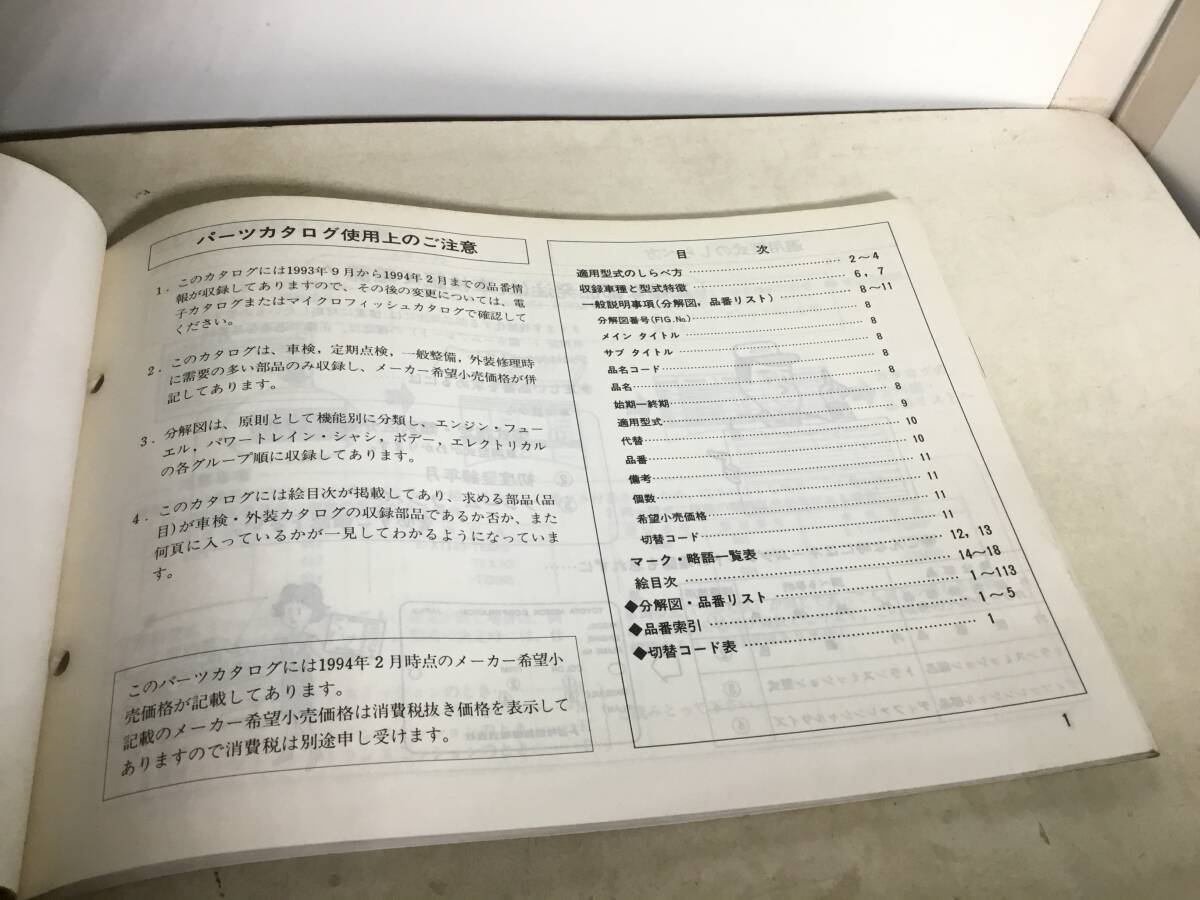 パーツカタログ使用上のご注意
1. このカタログには1993年9月から1994年2月までの品番情
報が収録してありますので、その後の変更については、電
子カタログまたはマイクロフィッシュカタログで確認して
ください。
2. このカタログは、車検，定期点検，一般整備，外装修理時
に需要の多い部品のみ収録し、メーカー希望小売価格が併
記してあります。
3. 分解図は、原則として機能別に分類し、エンジン・フュー
エル，パワートレイン・シャシ，ボデー，エレクトリカル
の各グループ順に収録してあります。
4. このカタログには絵目次が掲載してあり、求める部品(品
目)が車検・外装カタログの収録部品であるか否か、また
何頁に入っているかが一見してわかるようになっていま
す。
このパーツカタログには1994年2月時点のメーカー希望小
売価格が記載してあります。
記載のメーカー希望小売価格は消費税抜き価格を表示して
ありますので消費税は別途申し受けます。
目 次
適用型式のしらべ方 2～4
収録車種と型式特徴 6, 7
一般説明事項(分解図，品番リスト) 8～11
分解図番号(FIG.No.) 8
メイン タイトル 8
サブ タイトル 8
品名コード 8
品名 8
始期―終期 8
適用型式 9
代替 10
品番 10
備考 11
個数 11
希望小売価格 11
切替コード 11
マーク・略語一覧表 12, 13
絵目次 14～18
◆分解図・品番リスト 1～113
◆品番索引 1～5
◆切替コード表 1
1